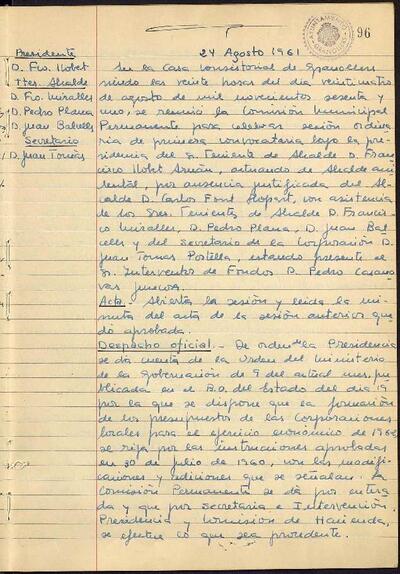 AYUNTAMIENTO
GRANOLLERS
96
24 Agosto 1961
Presidente
D. Fco. Llobet
Ttes. Alcalde
D. Fco. Miralles
D. Pedro Plana
D. Juan Balcells
Secretario
D. Juan Tomas
En la Casa Consistorial de Granollers
siendo las veinte horas del día veinticuatro
de agosto de mil novecientos sesenta y
uno, se reunió la Comisión Municipal
Permanente para celebrar sesión ordina
ria de primera convocatoria bajo la pre
sidencia del Sr. Teniente de Alcalde D. Fran
cisco Llobet Arnán, actuando de Alcalde acci
dental, por ausencia justificada del Al
calde D. Carlos Font Llopart, con asistencia
de los Sres. Tenientes de Alcalde D. Francis
co Miralles, D. Pedro Plana, D. Juan Bal
cells y del Secretario de la Corporación D.
Juan Tomas Portilla, estando presente el
Sr. Interventor de Fondos D. Pedro Casano
vas Juncà.
Acta.- Abierta la sesión y leida la mi
nuta del acta de la sesión anterior que
dó aprobada.
Despacho oficial.- De orden de la Presidencia
se dá cuenta de la Orden del Ministerio
de la Gobernación de 9 del actual mes, pu
blicada en el B.O. del Estado del día 19
por la que se dispone que la formación
de los presupuestos de las Corporaciones
locales para el ejercicio económico de 1962,
se rija por las instrucciones aprobadas
en 30 de julio de 1960, con las modifi
caciones y adiciones que se señalan. La
Comisión Permanente se dá por entera
da y que por Secretaria e Intervención,
Presidencia y Comision de Hacienda,
se efectue lo que sea procedente.